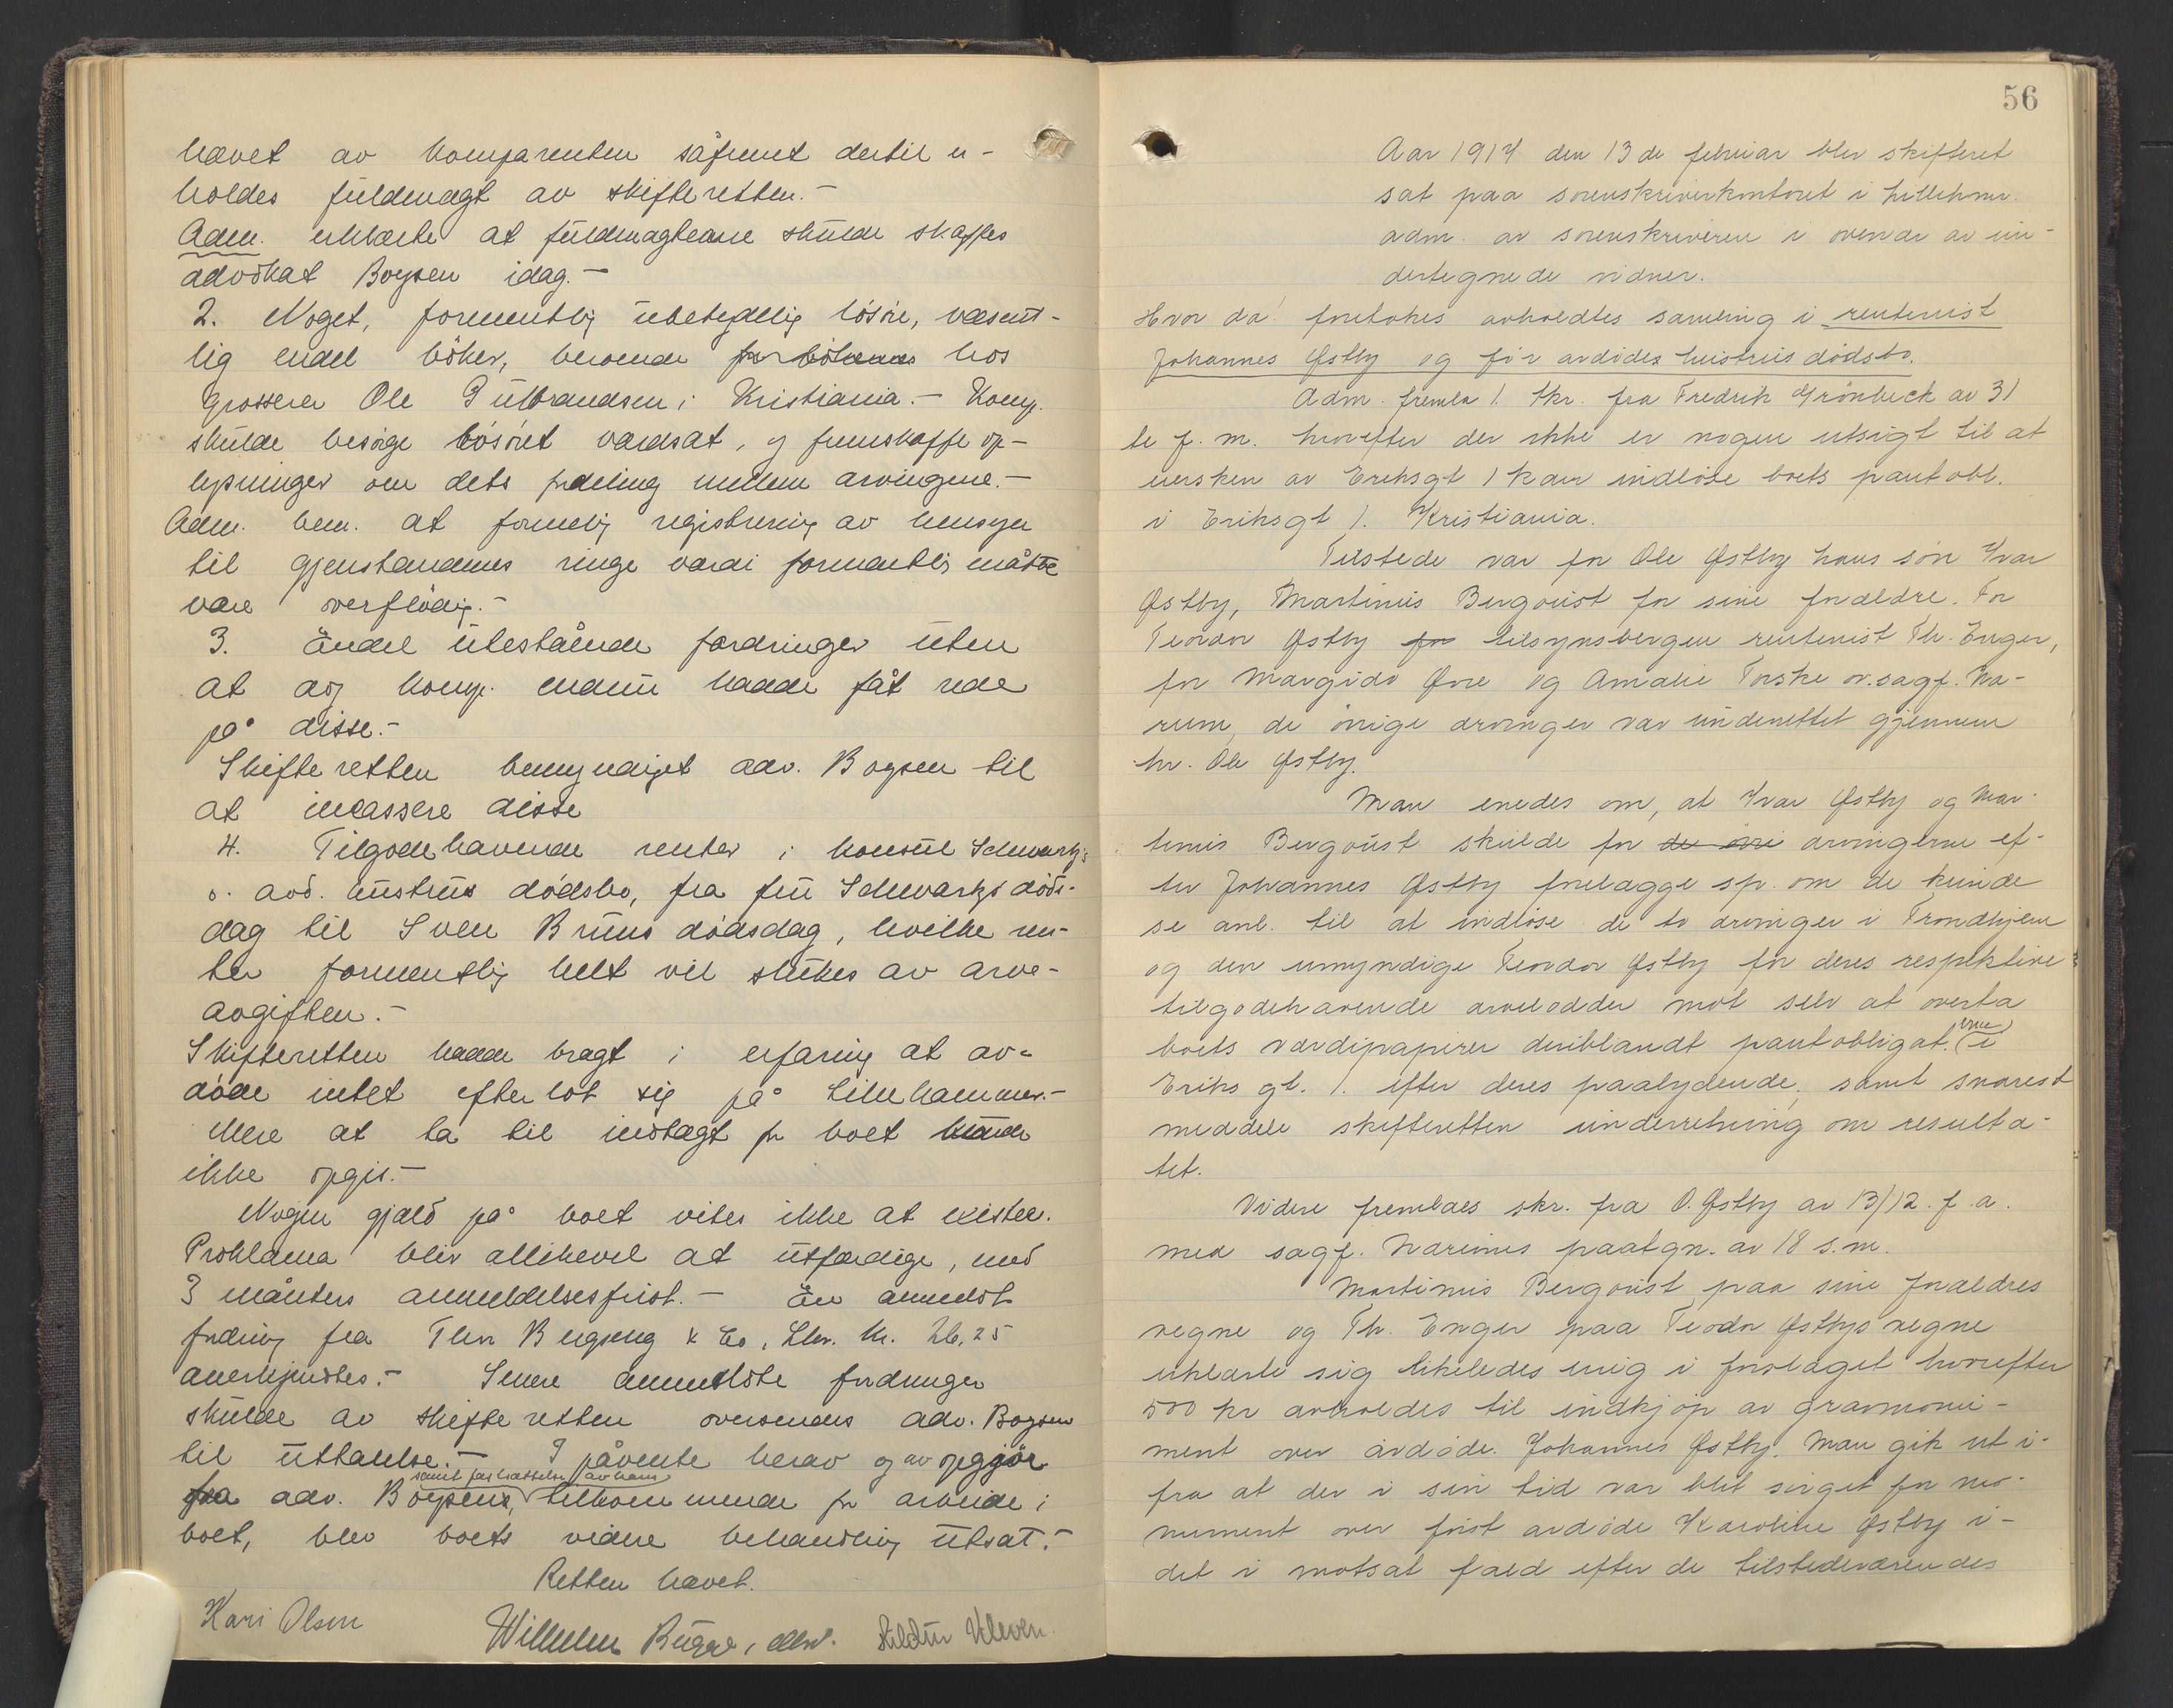 hævet av komparenten såfremt dertil u-
holdes fuldmagt av skifteretten.-
Adm. erklærte at fuldmagtene skulde skaffes
advokat Boysen idag.-
2. Noget, formentlig ubetydelig løsøre, væsent-
lig endel bøker, beroende hos
Grosserer Ole Gulbrandsen i Kristiania.- Komp.
skulde besørge løsøret værdsat, og fremskaffe op-
lysninger om dets fordeling mellem arvingene.-
Adm. bem. at formelig registrering av hensyn
til gjenstandenes ringe værdi formentlig måtte
være overflødig.-
3. Endel utestående fordringer uten
at dog komp. endnu hadde fåt rede
på disse.-
Skifteretten bemyndiget adv. Boysen til
at incassere disse
4. Tilgodehavende renter i konsul Schwartz's
o. avd. hustrus dødsbo, fra fru Schwartz's døds-
dag til Sven Bruns dødsdag, hvilke ren-
ter formentlig helt vil slukes av arve-
avgiften.-
Skifteretten hadde bragt i erfaring at av-
døde intet efterlot sig på Lillehammer.-
Mere at ta til indtægt for boet kunde
ikke opgis.-
Nogen gjæld på boet vites ikke at existere.
Proklama blir allikevel at utfærdige, med
3 måneders anmeldelsesfrist.- En anmeldt
fordring fra Bergseng & Co, Lhr. kr. 26,25
anerkjendtes.- Senere anmeldte fordringer
skulde av skifteretten oversendes adv. Boysen
til uttalelse.- I påvente herav og av opgjør
samt fastsættelse av hans
fra adv. Boysens, tilkommende for arbeide i
boet, blev boets videre behandling utsat.-
Retten hævet.
Kari Olsen Wilhelm Bugge, Kleven.
56
Aar 1914 den 13de februar blev skifteret
sat paa sorenskriverkontoret i Lillehmr.
adm. av sorenskriveren i overvær av un-
dertegnede vidner.
Hvor da foretokes avholdtes samling i rentenist
Johannes Østby og før avdødes hustrus dødsbo.
Adm. fremla 1. skr. fra Fredrik Grönbeck av 31
te f. m. hvorefter der ikke er nogen utsigt til at
eiersken av Eriksgt 1 kan indløse boets pantobl.
i Eriksgt 1. Kristiania.
Tilstede var for Ole Østby hans søn Ivar
Østby, Martinius Bergquist for sine forældre. For
Teodor Østby for tilsynsvergen rentenist Th. Enger,
for Margido Øvre og Amalie Torske o.r.sagf. Na-
rum, de øvrige arvinger var underrettet gjennem
hr. Ole Østby.
Man enedes om, at Ivar Østby og Mar-
tinius Bergquist skulde for de øvri arvingerne ef-
ter Johannes Østby forelægge sp. om de kunde
se anl. til at indløse de to arvinger i Trondhjem
og den umyndige Teodor Østby for deres respektive
tilgodehavende arvelodder mot selv at overta
boets værdipapirer deriblandt pantobligat. (i
Eriks gt. 1. efter deres paalydende, samt snarest
meddele skifteretten underretning om resulta-
tet.
Videre fremlaes skr. fra O. Østby av 13/12. f.a.
med sagf. Narums paategn. av 18 s.m.
Martinius Bergquist paa sine forældres
vegne og Th. Enger paa Teodor Østbys vegne
erklærte sig likeledes enig i forslaget hvorefter
500 kr avholdes til indkjøp av gravmonu-
ment over avdøde. Johannes Østby. Man gik ut i-
fra at der i sin tid var blit sørget for mo-
nument over først avdøde Karoline Østby i-
det i motsat fald efter de tilstedeværendes